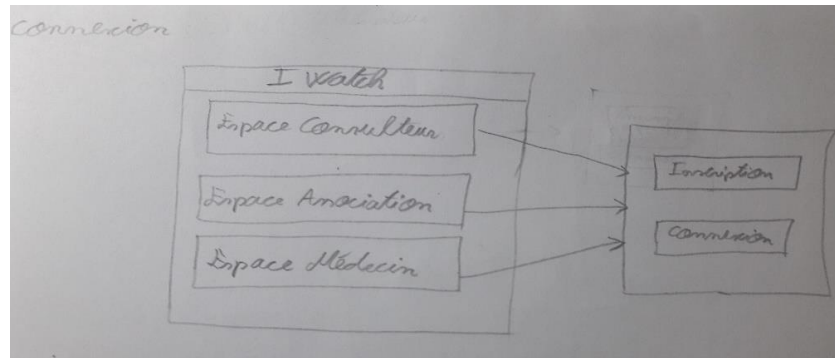 Connexion
I watch
Espace Consulteur
Espace Association
Espace Médecin
Inscription
Connexion